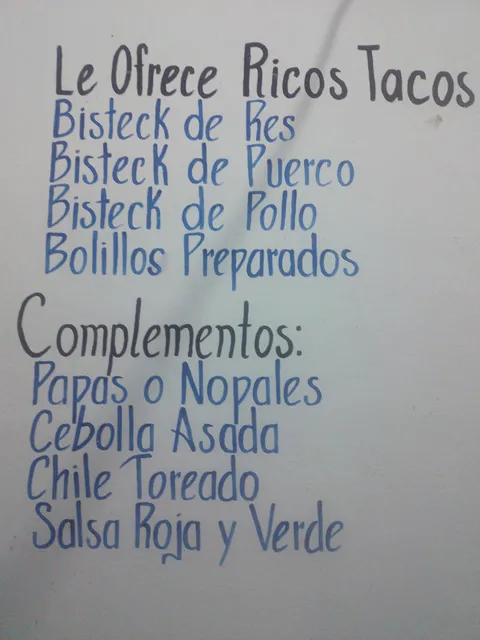 Le Ofrece Ricos Tacos
Bisteck de Res
Bisteck de Puerco
Bisteck de Pollo
Bolillos Preparados
Complementos:
Papas o Nopales
Cebolla Asada
Chile Toreado
Salsa Roja y Verde